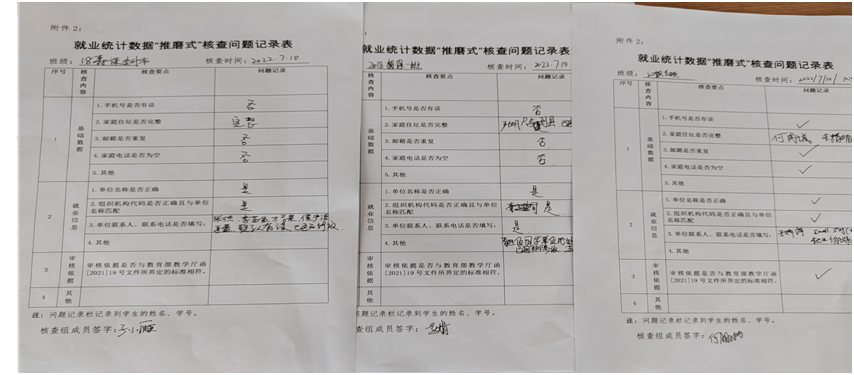 附件2：
就业统计数据“推磨式”核查问题记录表
班级：
核查时间：2022.7.10
序号 核查内容 核查要点 问题记录
1 基础数据
1.手机号是否有误 否
2.家庭住址是否完整 完整
3.邮箱是否重复 否
4.家庭电话是否为空 否
5.其他
2 就业信息
1.单位名称是否正确 是
2.组织机构代码是否正确且与单位名称匹配 是
3.单位联系人、联系电话是否填写；
4.其他
3 审核依据 审核依据是否与教育部教学厅函[2021]19号文件所界定的标准相符。
4 其他
注：问题记录栏记录到学生的姓名、学号。
核查组成员签字：
就业统计数据“推磨式”核查问题记录表
核查时间：2022.7.10
核查内容 核查要点 问题记录
基础数据
1.手机号是否有误 否
2.家庭住址是否完整
3.邮箱是否重复 否
4.家庭电话是否为空 否
5.其他
就业信息
1.单位名称是否正确 是
2.组织机构代码是否正确且与单位名称匹配 是
3.单位联系人、联系电话是否填写； 是
4.其他
审核依据 审核依据是否与教育部教学厅函[2021]19号文件所界定的标准相符。
其他
问题记录栏记录到学生的姓名、学号。
查组成员签字：
附件2：
就业统计数据“推磨式”核查问题记录表
班级：
核查时间：2022/7/10
序号 核查内容 核查要点 问题记录
1 基础数据
1.手机号是否有误 ✓
2.家庭住址是否完整
3.邮箱是否重复 ✓
4.家庭电话是否为空 ✓
5.其他
2 就业信息
1.单位名称是否正确 ✓
2.组织机构代码是否正确且与单位名称匹配 ✓
3.单位联系人、联系电话是否填写；
4.其他
3 审核依据 审核依据是否与教育部教学厅函[2021]19号文件所界定的标准相符。 ✓
4 其他
注：问题记录栏记录到学生的姓名、学号。
核查组成员签字：